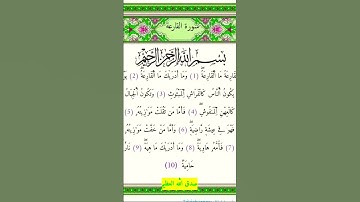 سورة القارعة
بسم الله الرحمن الرحيم
مَا ٱلْقَارِعَةُ (1) وَمَآ أَدْرَىٰكَ مَا ٱلْقَارِعَةُ (2)
يَكُونُ ٱلنَّاسُ كَٱلْفَرَاشِ ٱلْمَبْثُوثِ (3) وَتَكُونُ ٱلْجِبَالُ
كَٱلْعِهْنِ ٱلْمَنفُوشِ (4) فَأَمَّا مَن ثَقُلَتْ مَوَٰزِينُهُۥ (5)
فَهُوَ فِى عِيشَةٍ رَّاضِيَةٍ (6) وَأَمَّا مَنْ خَفَّتْ مَوَٰزِينُهُۥ
(7) فَأُمُّهُۥ هَاوِيَةٌ (8) وَمَآ أَدْرَىٰكَ مَا هِيَهْ (9) نَارٌ
حَامِيَةٌ (10)
صدق الله العظيم